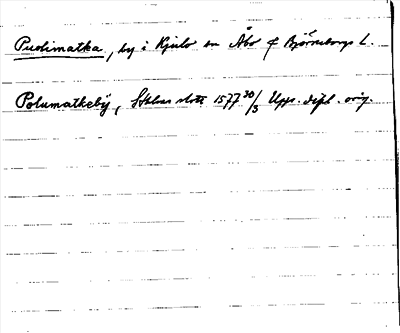 Puolimatka, by i Kjulo sn Åbo o Björneborgs l.
Polumatkeby, Sthlms slott 1577 30/3 Upps. dipl. orig.